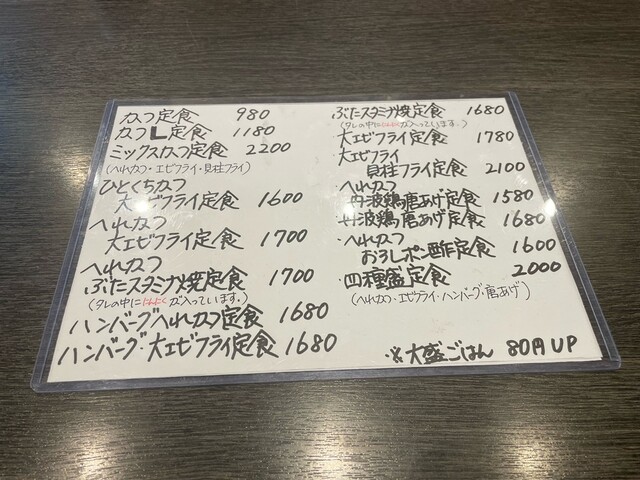 かつ定食 980
かつL定食 1180
ミックスかつ定食 2200
(へれかつ・エビフライ・貝柱フライ)
ひとくちかつ
大エビフライ定食 1600
へれかつ
大エビフライ定食 1700
へれかつ
ぶたスタミナ焼定食 1700
(タレの中ににんにくが入っています。)
ハンバーグへれかつ定食 1680
ハンバーグ・大エビフライ定食 1680
ぶたスタミナ焼定食 1680
(タレの中ににんにくが入っています。)
大エビフライ定食 1780
大エビフライ
貝柱フライ定食 2100
へれかつ
丹波鶏唐あげ定食 1580
・丹波鶏唐あげ定食 1680
・へれかつ
おろしポン酢定食 1600
・四種盛定食 2000
(へれかつ・エビフライ・ハンバーグ・唐あげ)
※大盛ごはん 80円UP